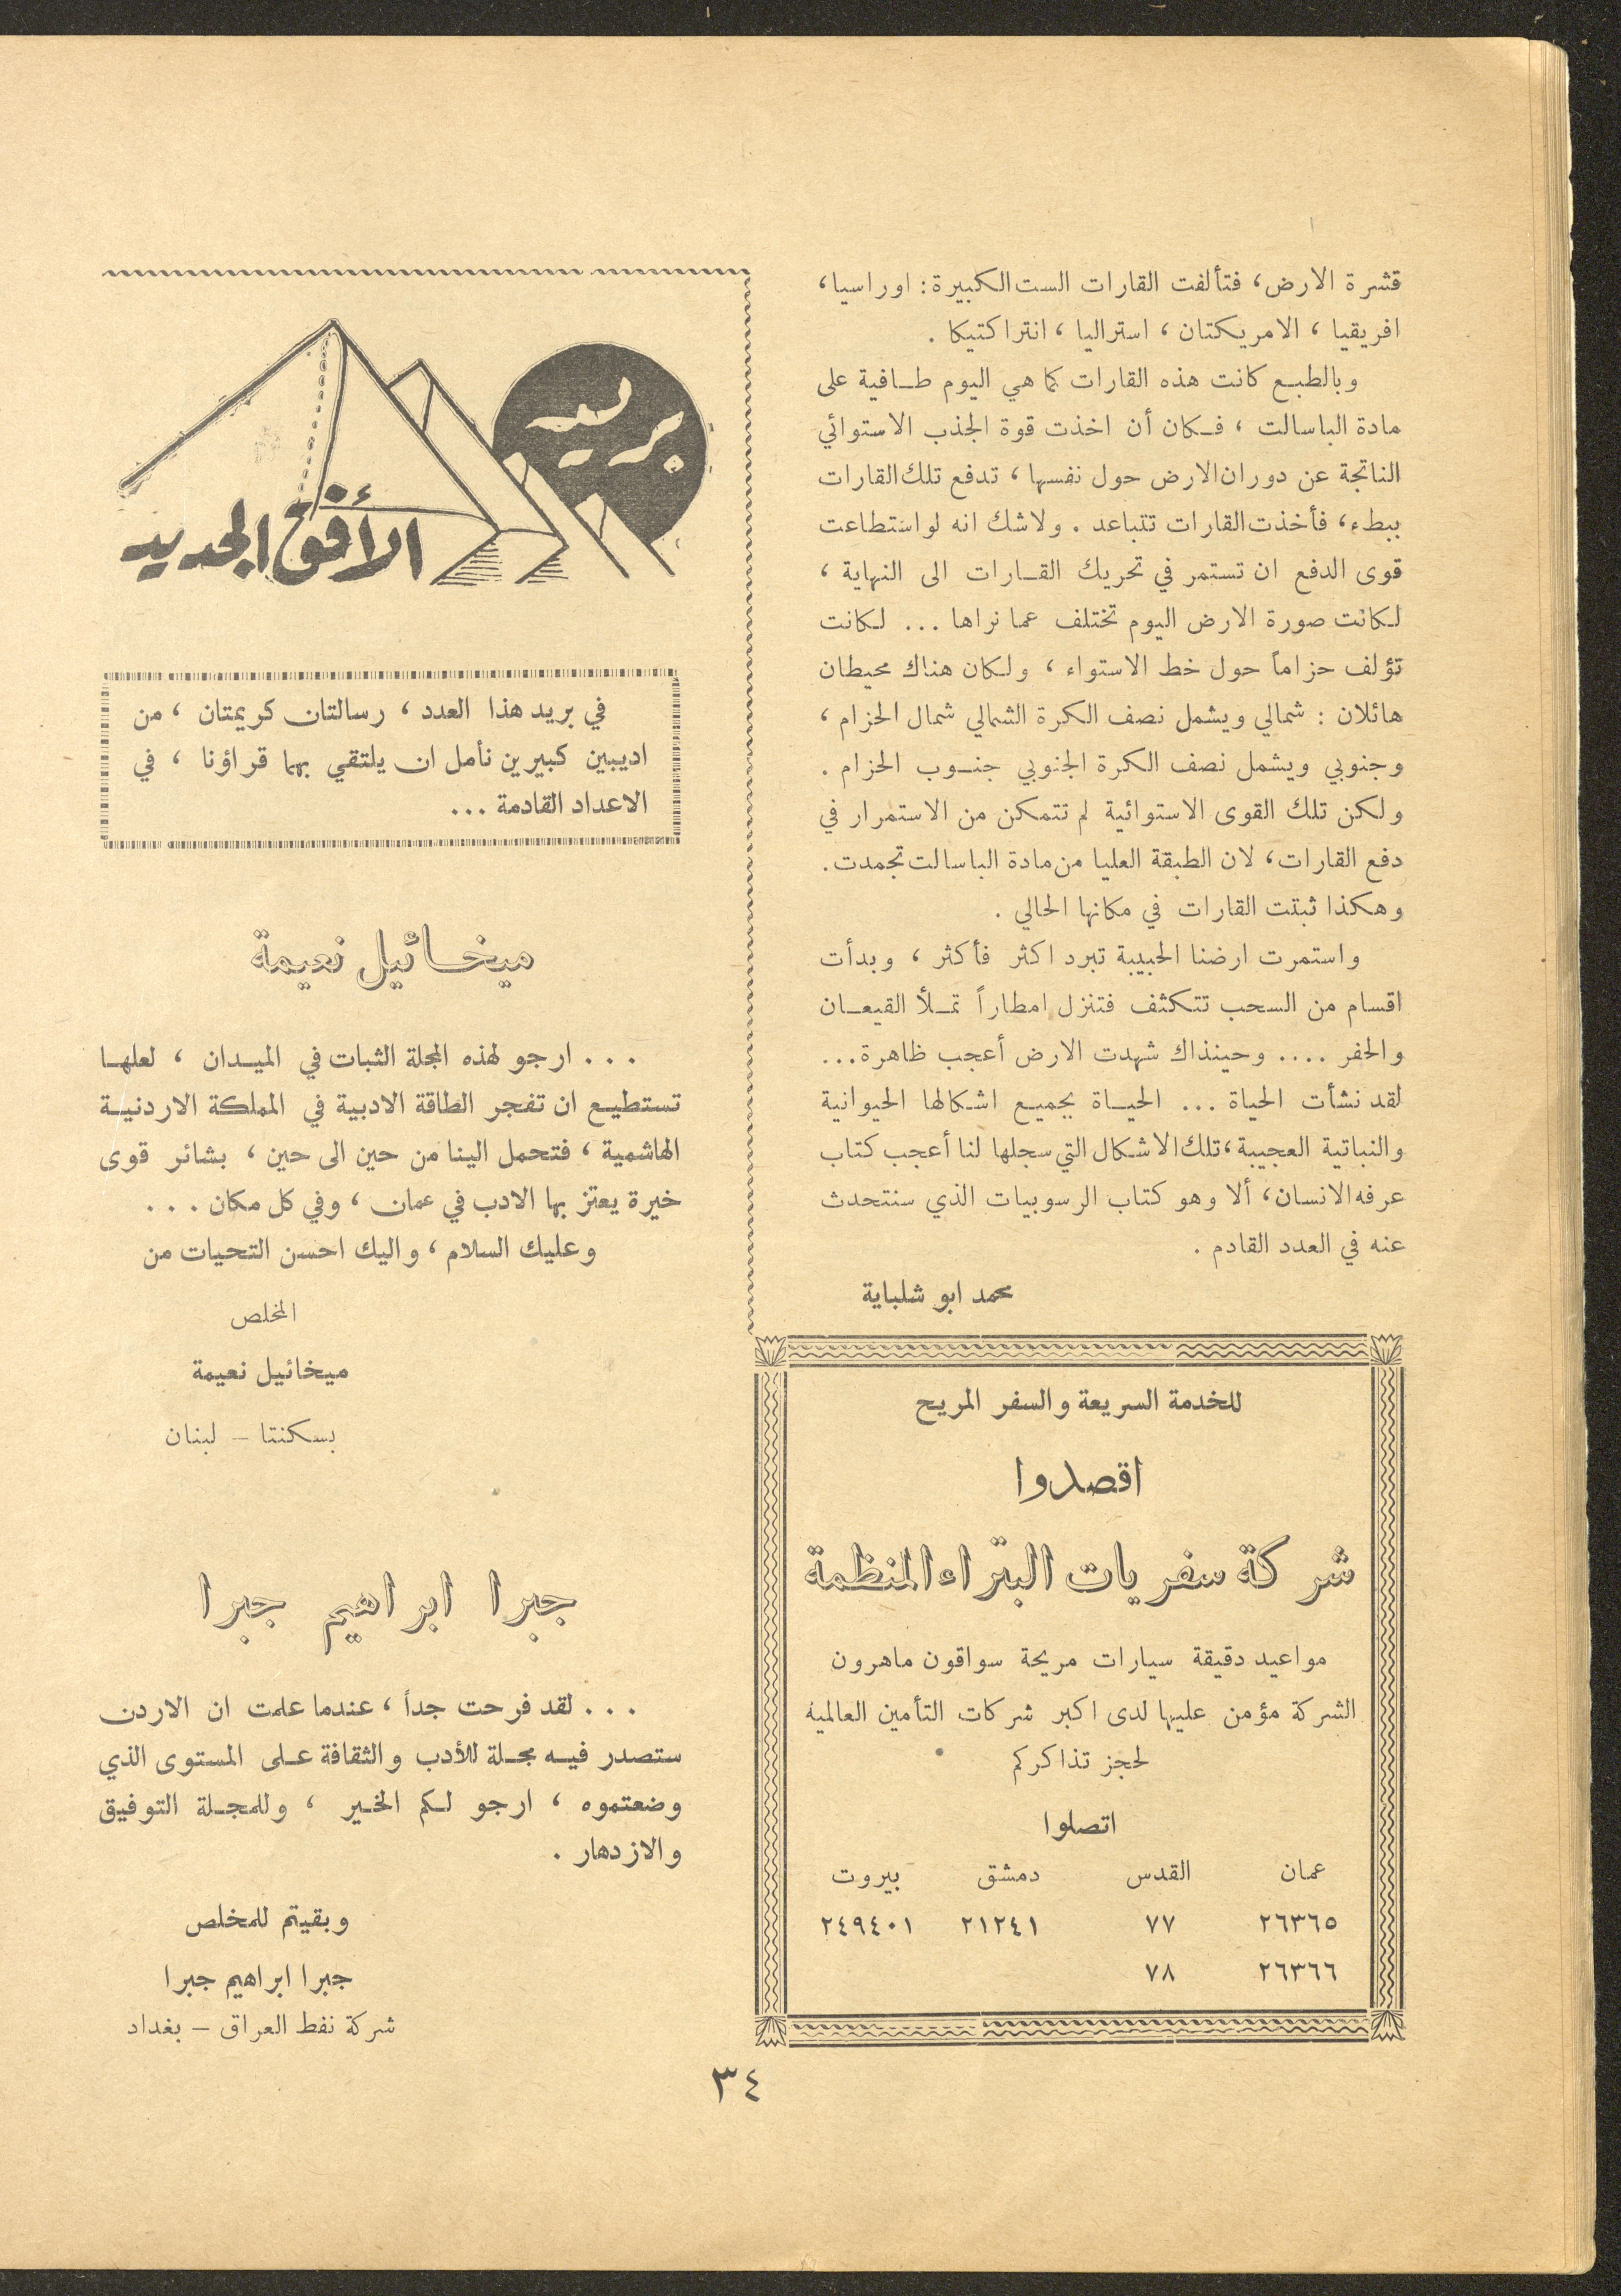 قشرة الارض، فتألفت القارات الست الكبيرة: اوراسيا،
افريقيا ، الامريكتان ، استراليا ، انتراكتيكا .
وبالطبع كانت هذه القارات كما هي اليوم طافية على
مادة الباسالت ، فكان أن اخذت قوة الجذب الاستوائي
الناتجة عن دوران الارض حول نفسها ، تدفع تلك القارات
ببطء، فأخذت القارات تتباعد . ولاشك انه لو استطاعت
قوى الدفع ان تستمر في تحريك القارات الى النهاية ،
لكانت صورة الارض اليوم تختلف عما نراها ... لكانت
تؤلف حزاماً حول خط الاستواء ، ولكان هناك محيطان
هائلان : شمالي ويشمل نصف الكرة الشمالي شمال الحزام ،
وجنوبي ويشمل نصف الكرة الجنوبي جنوب الحزام .
ولكن تلك القوى الاستوائية لم تتمكن من الاستمرار في
دفع القارات، لان الطبقة العليا من مادة الباسالت تجمدت.
وهكذا ثبتت القارات في مكانها الحالي .
واستمرت ارضنا الحبيبة تبرد اكثر فأكثر ، وبدأت
اقسام من السحب تتكثف فتنزل امطاراً تملأ القيعان
والحفر .... وحينذاك شهدت الارض أعجب ظاهرة...
لقد نشأت الحياة ... الحياة بجميع اشكالها الحيوانية
والنباتية العجيبة، تلك الاشكال التي سجلها لنا أعجب كتاب
عرفه الانسان، ألا وهو كتاب الرسوبيات الذي سنتحدث
عنه في العدد القادم .
محمد ابو شلباية
للخدمة السريعة والسفر المريح
اقصدوا
شركة سفريات البتراء المنظمة
مواعيد دقيقة سيارات مريحة سواقون ماهرون
الشركة مؤمن عليها لدى اكبر شركات التأمين العالمية
لحجز تذاكركم
اتصلوا
عمان القدس دمشق بيروت
٢٦٣٦٥ ٧٧ ٢١٢٤١ ٢٤٩٤٠١
٢٦٣٦٦ ٧٨
بريد
الأفق الجديد
في بريد هذا العدد ، رسالتان كريمتان ، من
اديبين كبيرين نأمل ان يلتقي بهما قراؤنا ، في
الاعداد القادمة ...
ميخائيل نعيمة
... ارجو لهذه المجلة الثبات في الميدان ، لعلها
تستطيع ان تفجر الطاقة الادبية في المملكة الاردنية
الهاشمية ، فتحمل الينا من حين الى حين ، بشائر قوى
خيرة يعتز بها الادب في عمان ، وفي كل مكان ...
وعليك السلام ، واليك احسن التحيات من
المخلص
ميخائيل نعيمة
بسكنتا – لبنان
جبرا ابراهيم جبرا
... لقد فرحت جداً ، عندما علمت ان الاردن
ستصدر فيه مجلة للأدب والثقافة على المستوى الذي
وضعتموه ، ارجو لكم الخير ، وللمجلة التوفيق
والازدهار .
وبقيتم للمخلص
جبرا ابراهيم جبرا
شركة نفط العراق – بغداد
٣٤